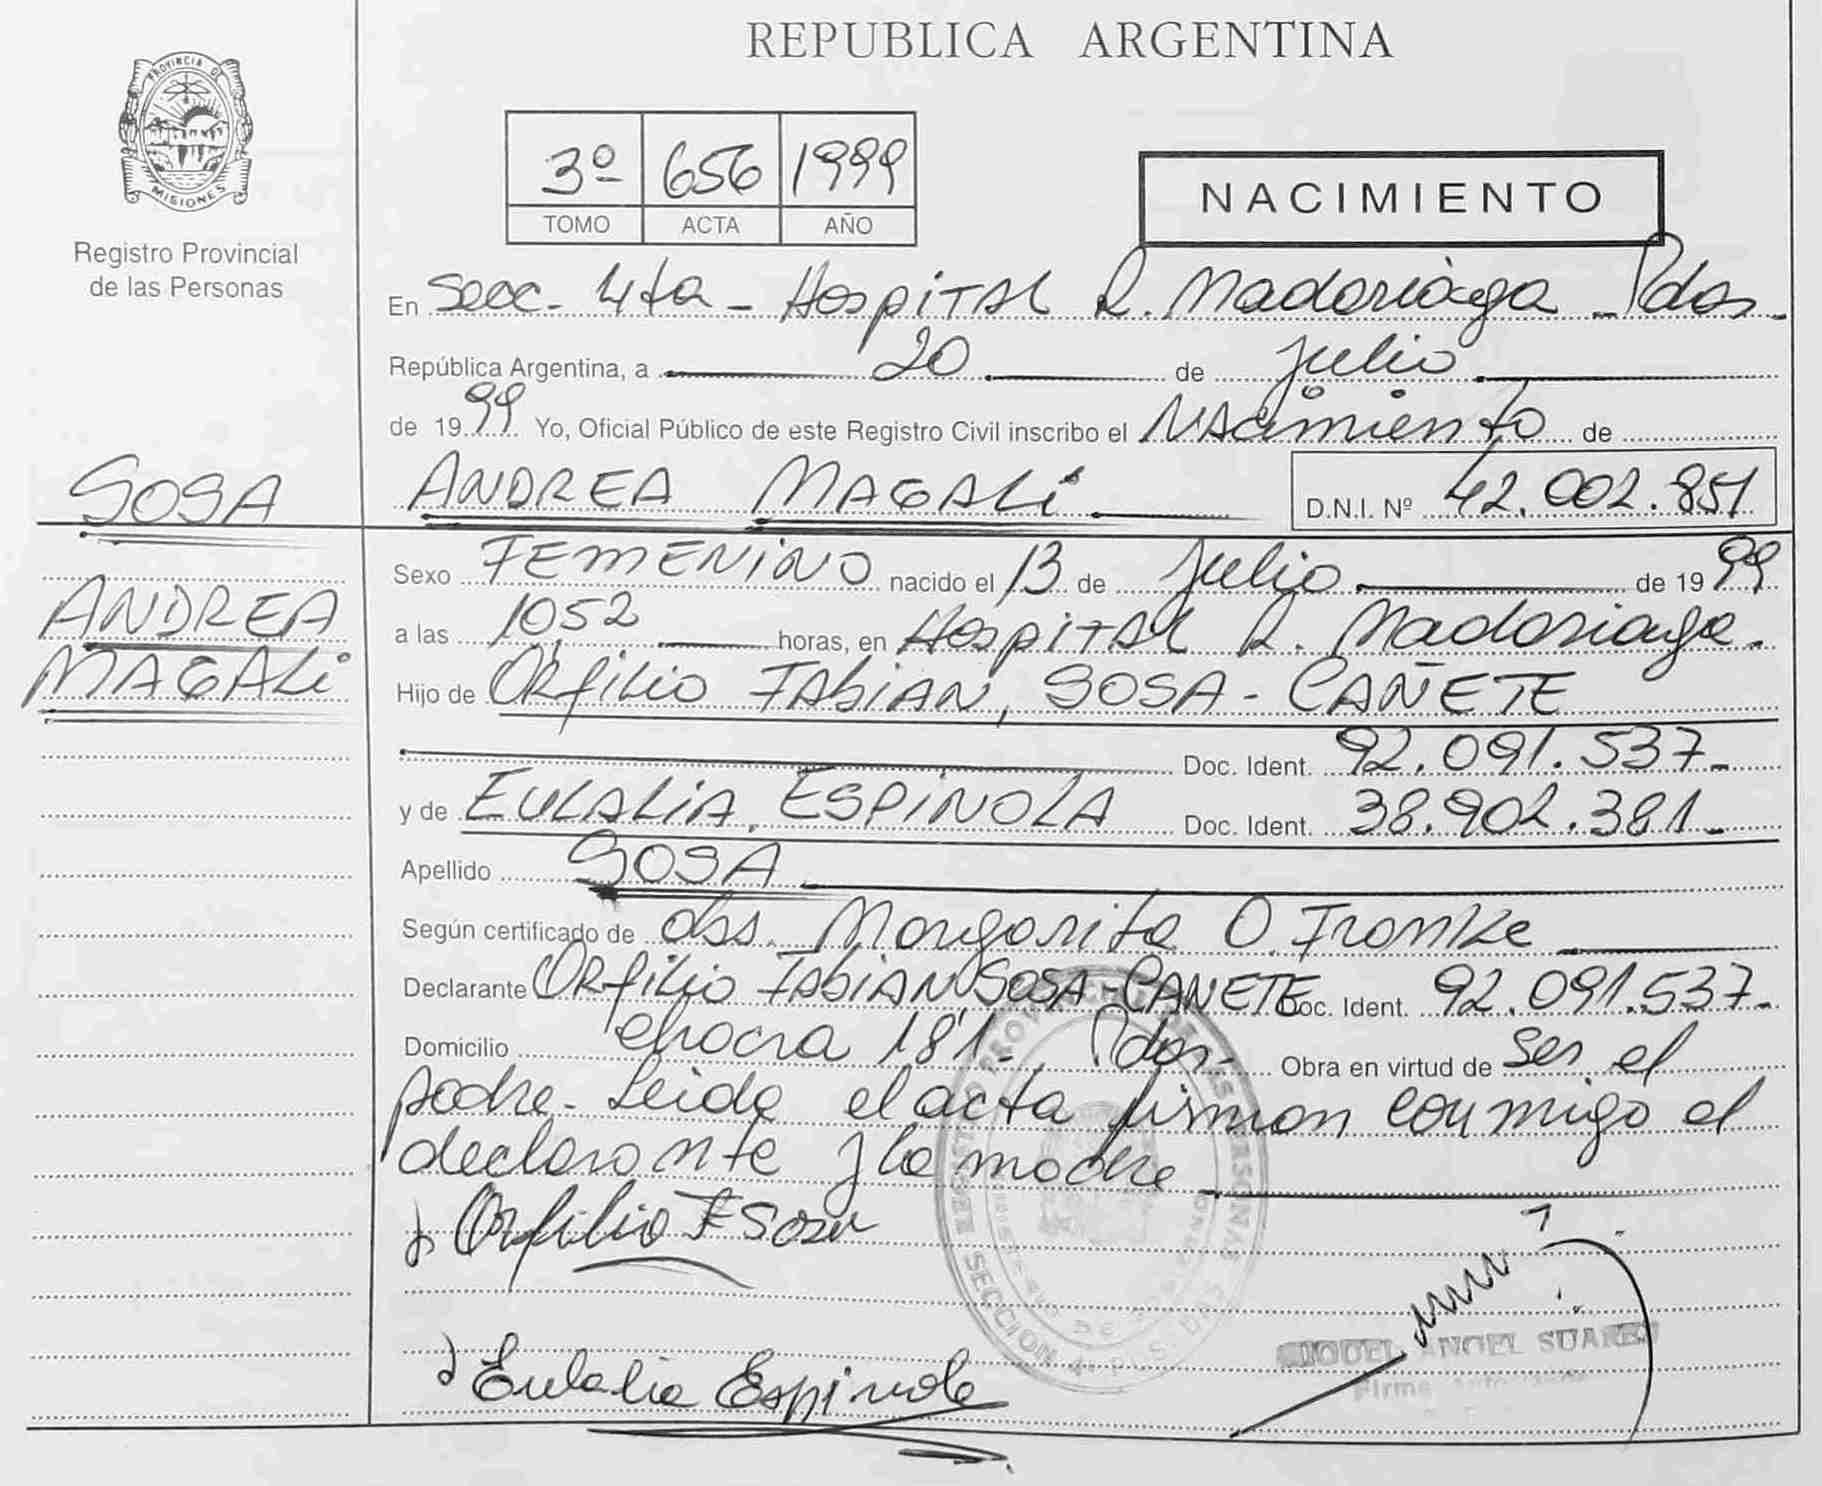 REPUBLICA ARGENTINA
PROVINCIA DE
MISIONES
Registro Provincial
de las Personas
3º 656 1999
TOMO ACTA AÑO
NACIMIENTO
En Secc. 4ta - HospiTAL R. Madariaga - Pdas.
República Argentina, a 20 de julio
de 1999 Yo, Oficial Público de este Registro Civil inscribo el NAcimiento de
SOSA
ANDREA MAGALi D.N.I. Nº 42.002.851
ANDREA
MAGALi
Sexo FEMENINO nacido el 13 de julio de 1999
a las 1052 horas, en HospiTAL R. Madariaga.
Hijo de ORfiLio FAbiAN, SOSA - CAÑETE
Doc. Ident. 92.091.537-
y de EULALiA, ESPINOLA Doc. Ident. 38.902.381-
Apellido SOSA
Según certificado de obs. Margarita O. Fronke
Declarante ORfiLio FAbiAN SOSA - CAÑETE Doc. Ident. 92.091.537-
Domicilio chacra 181- Pdas- Obra en virtud de ser el
padre - Leida el acta firman conmigo el
declarante y la madre
Orfilio F Sosa
REGISTRO PROVINCIAL DE LAS PERSONAS
SECCION 4ª
Eulalia Espinola
ANGEL SUAREZ
Firma